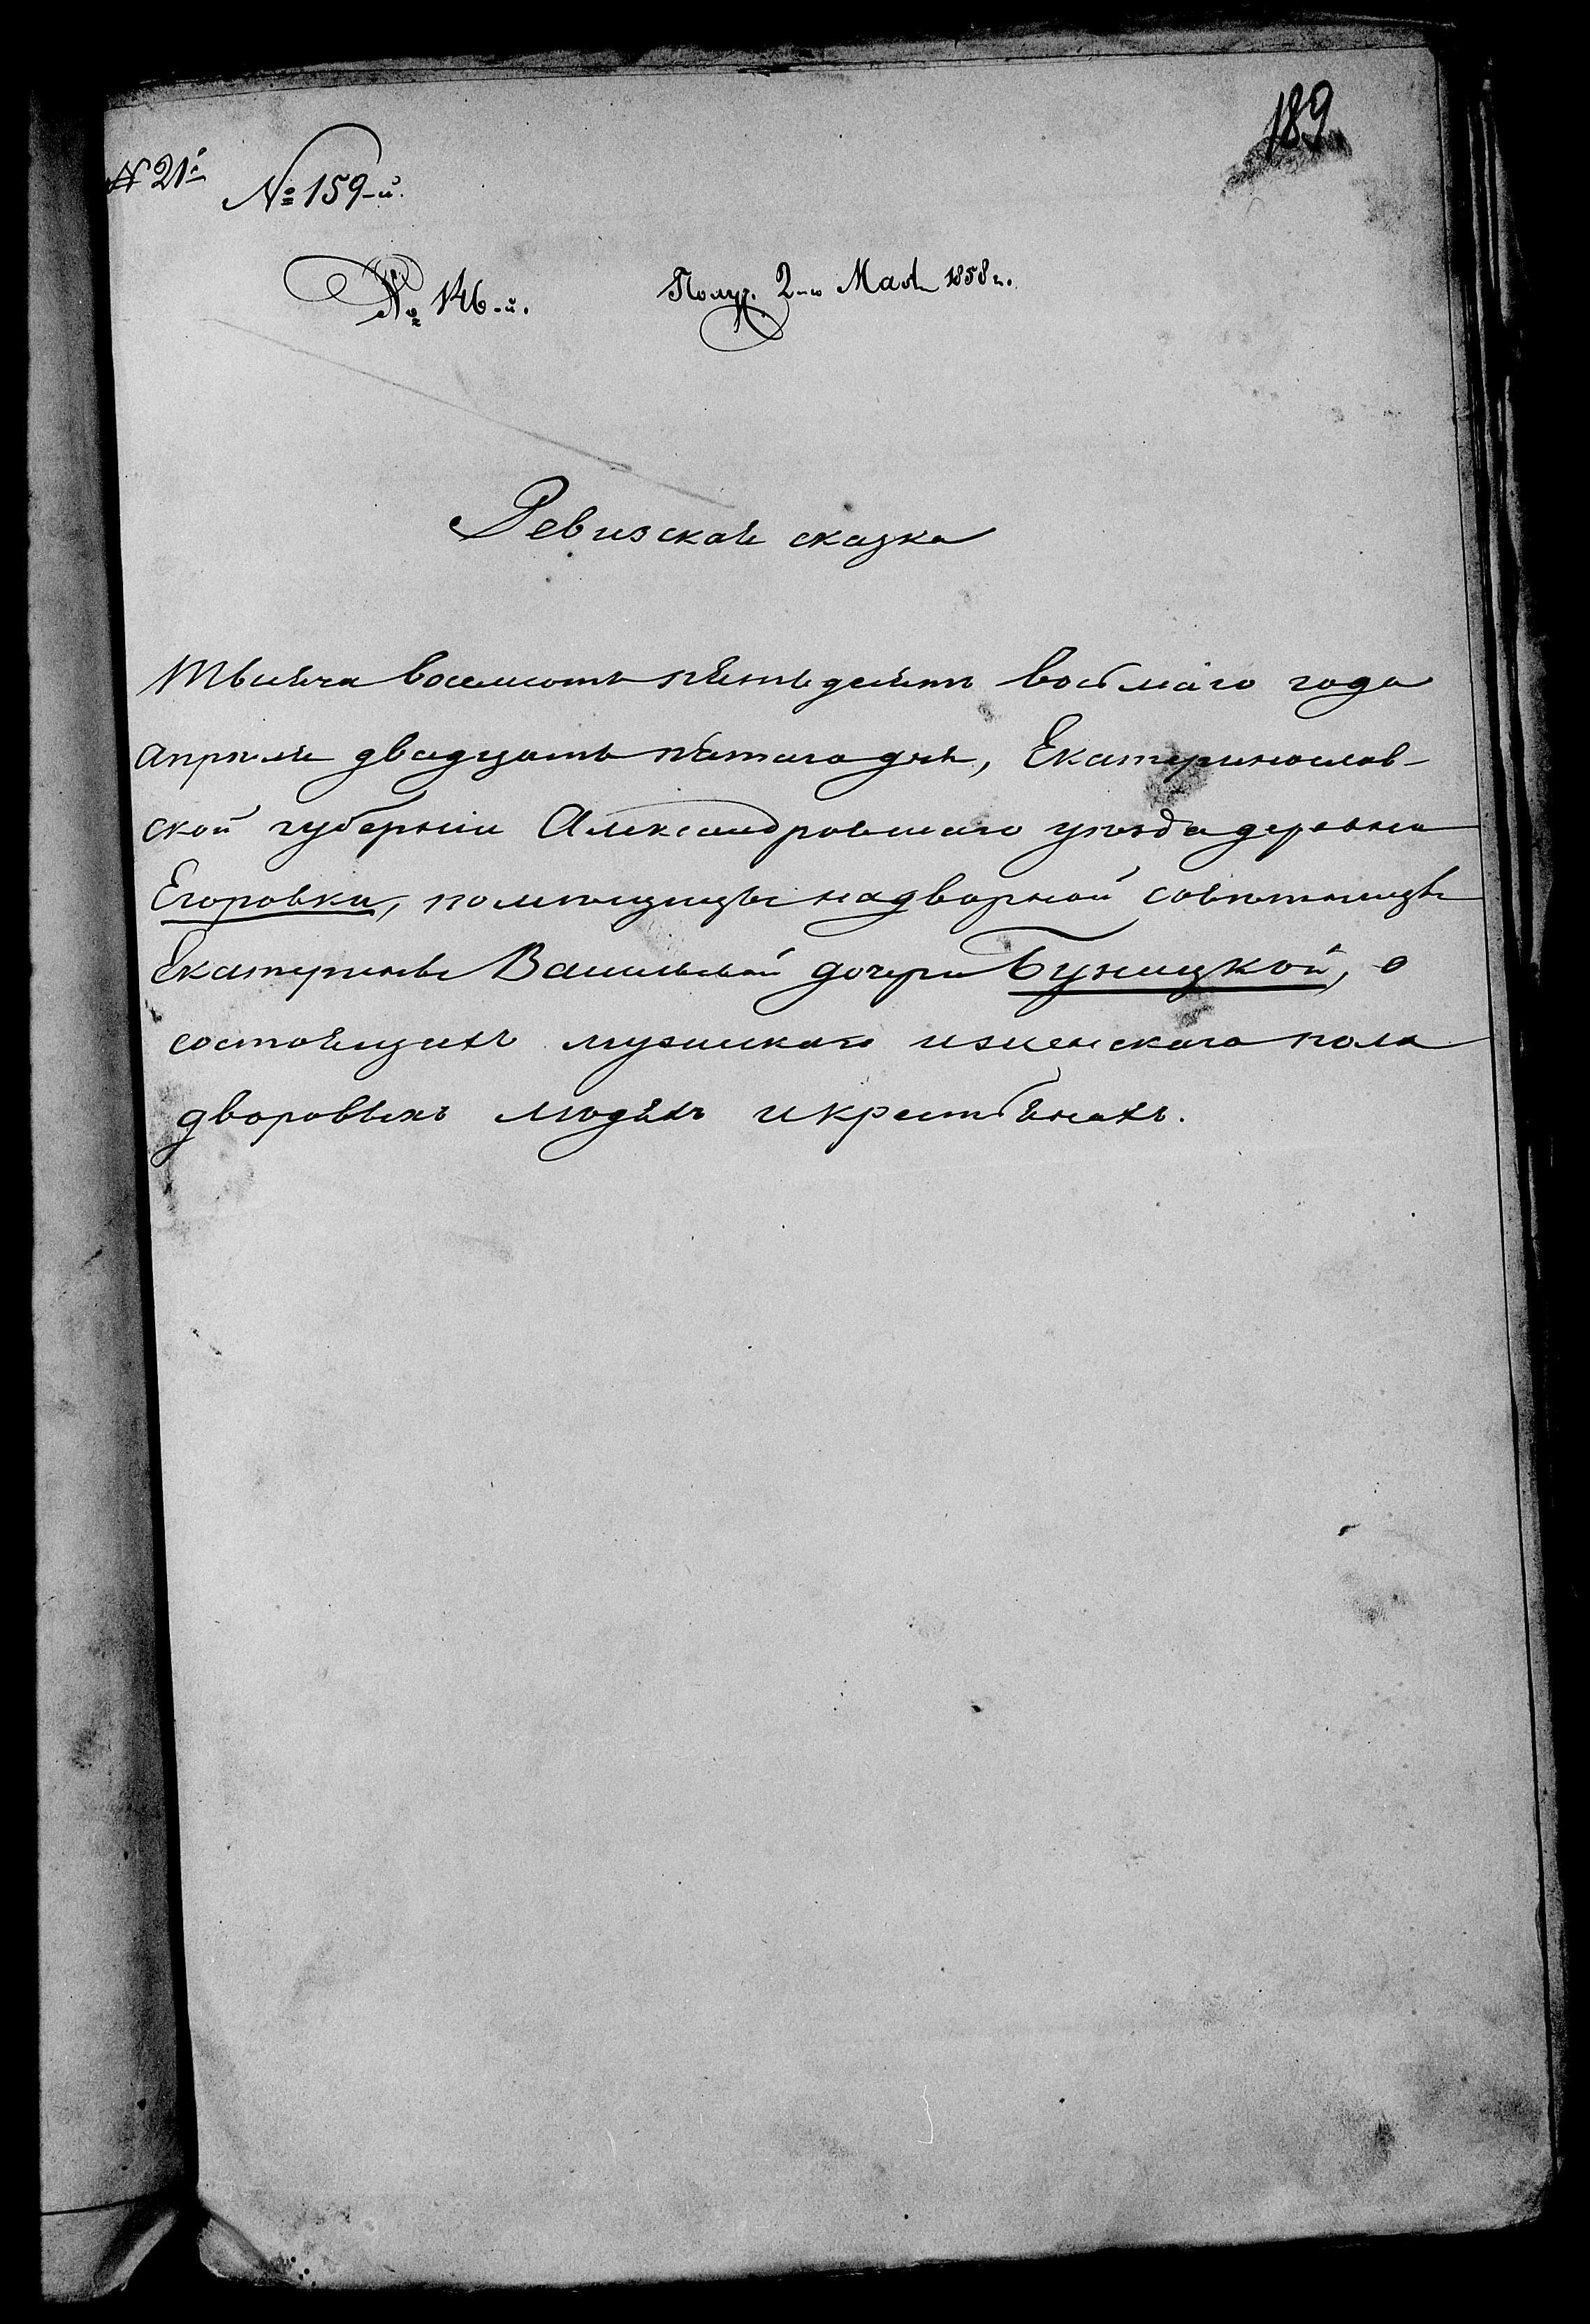 189
№ 21й
№ 159-й.
№ 146-й.
Получ. 2-го Мая 1858 г.
Ревизская сказка
Тысяча восемсотъ пятьдесятъ восьмаго года
апреля двадцать пятаго дня, Екатеринослав-
ской губерніи Александровскаго уезда деревни
Егоровки, помѣщицы надворной совѣтницы
Екатерины Васильевой дочери Буницкой, о
состоящихъ мужескаго и женскаго пола
дворовыхъ людяхъ и крестьянахъ.